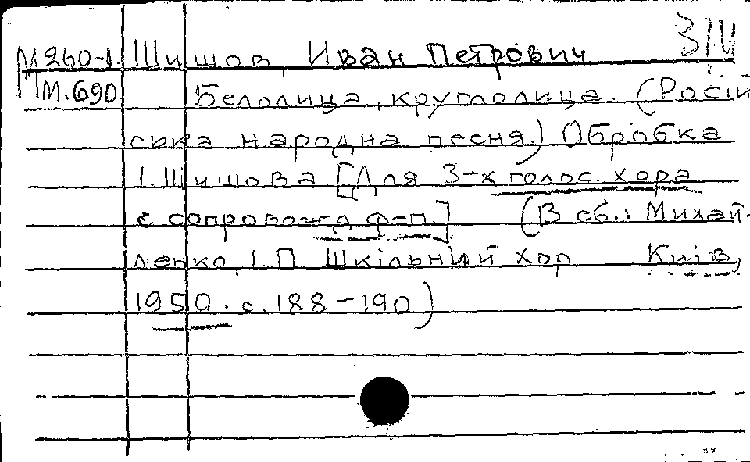 З/И
М260-1 Шишов, Иван Петрович
М.690 Белолица, круглолица. (Росій
ська народна песня.) Обробка
І. Шишова [Для 3-х голос. хора
с сопровожд. ф-п.] (В сб.: Михай-
ленко І.П. Шкільний хор Київ,
1950. с. 188-190)